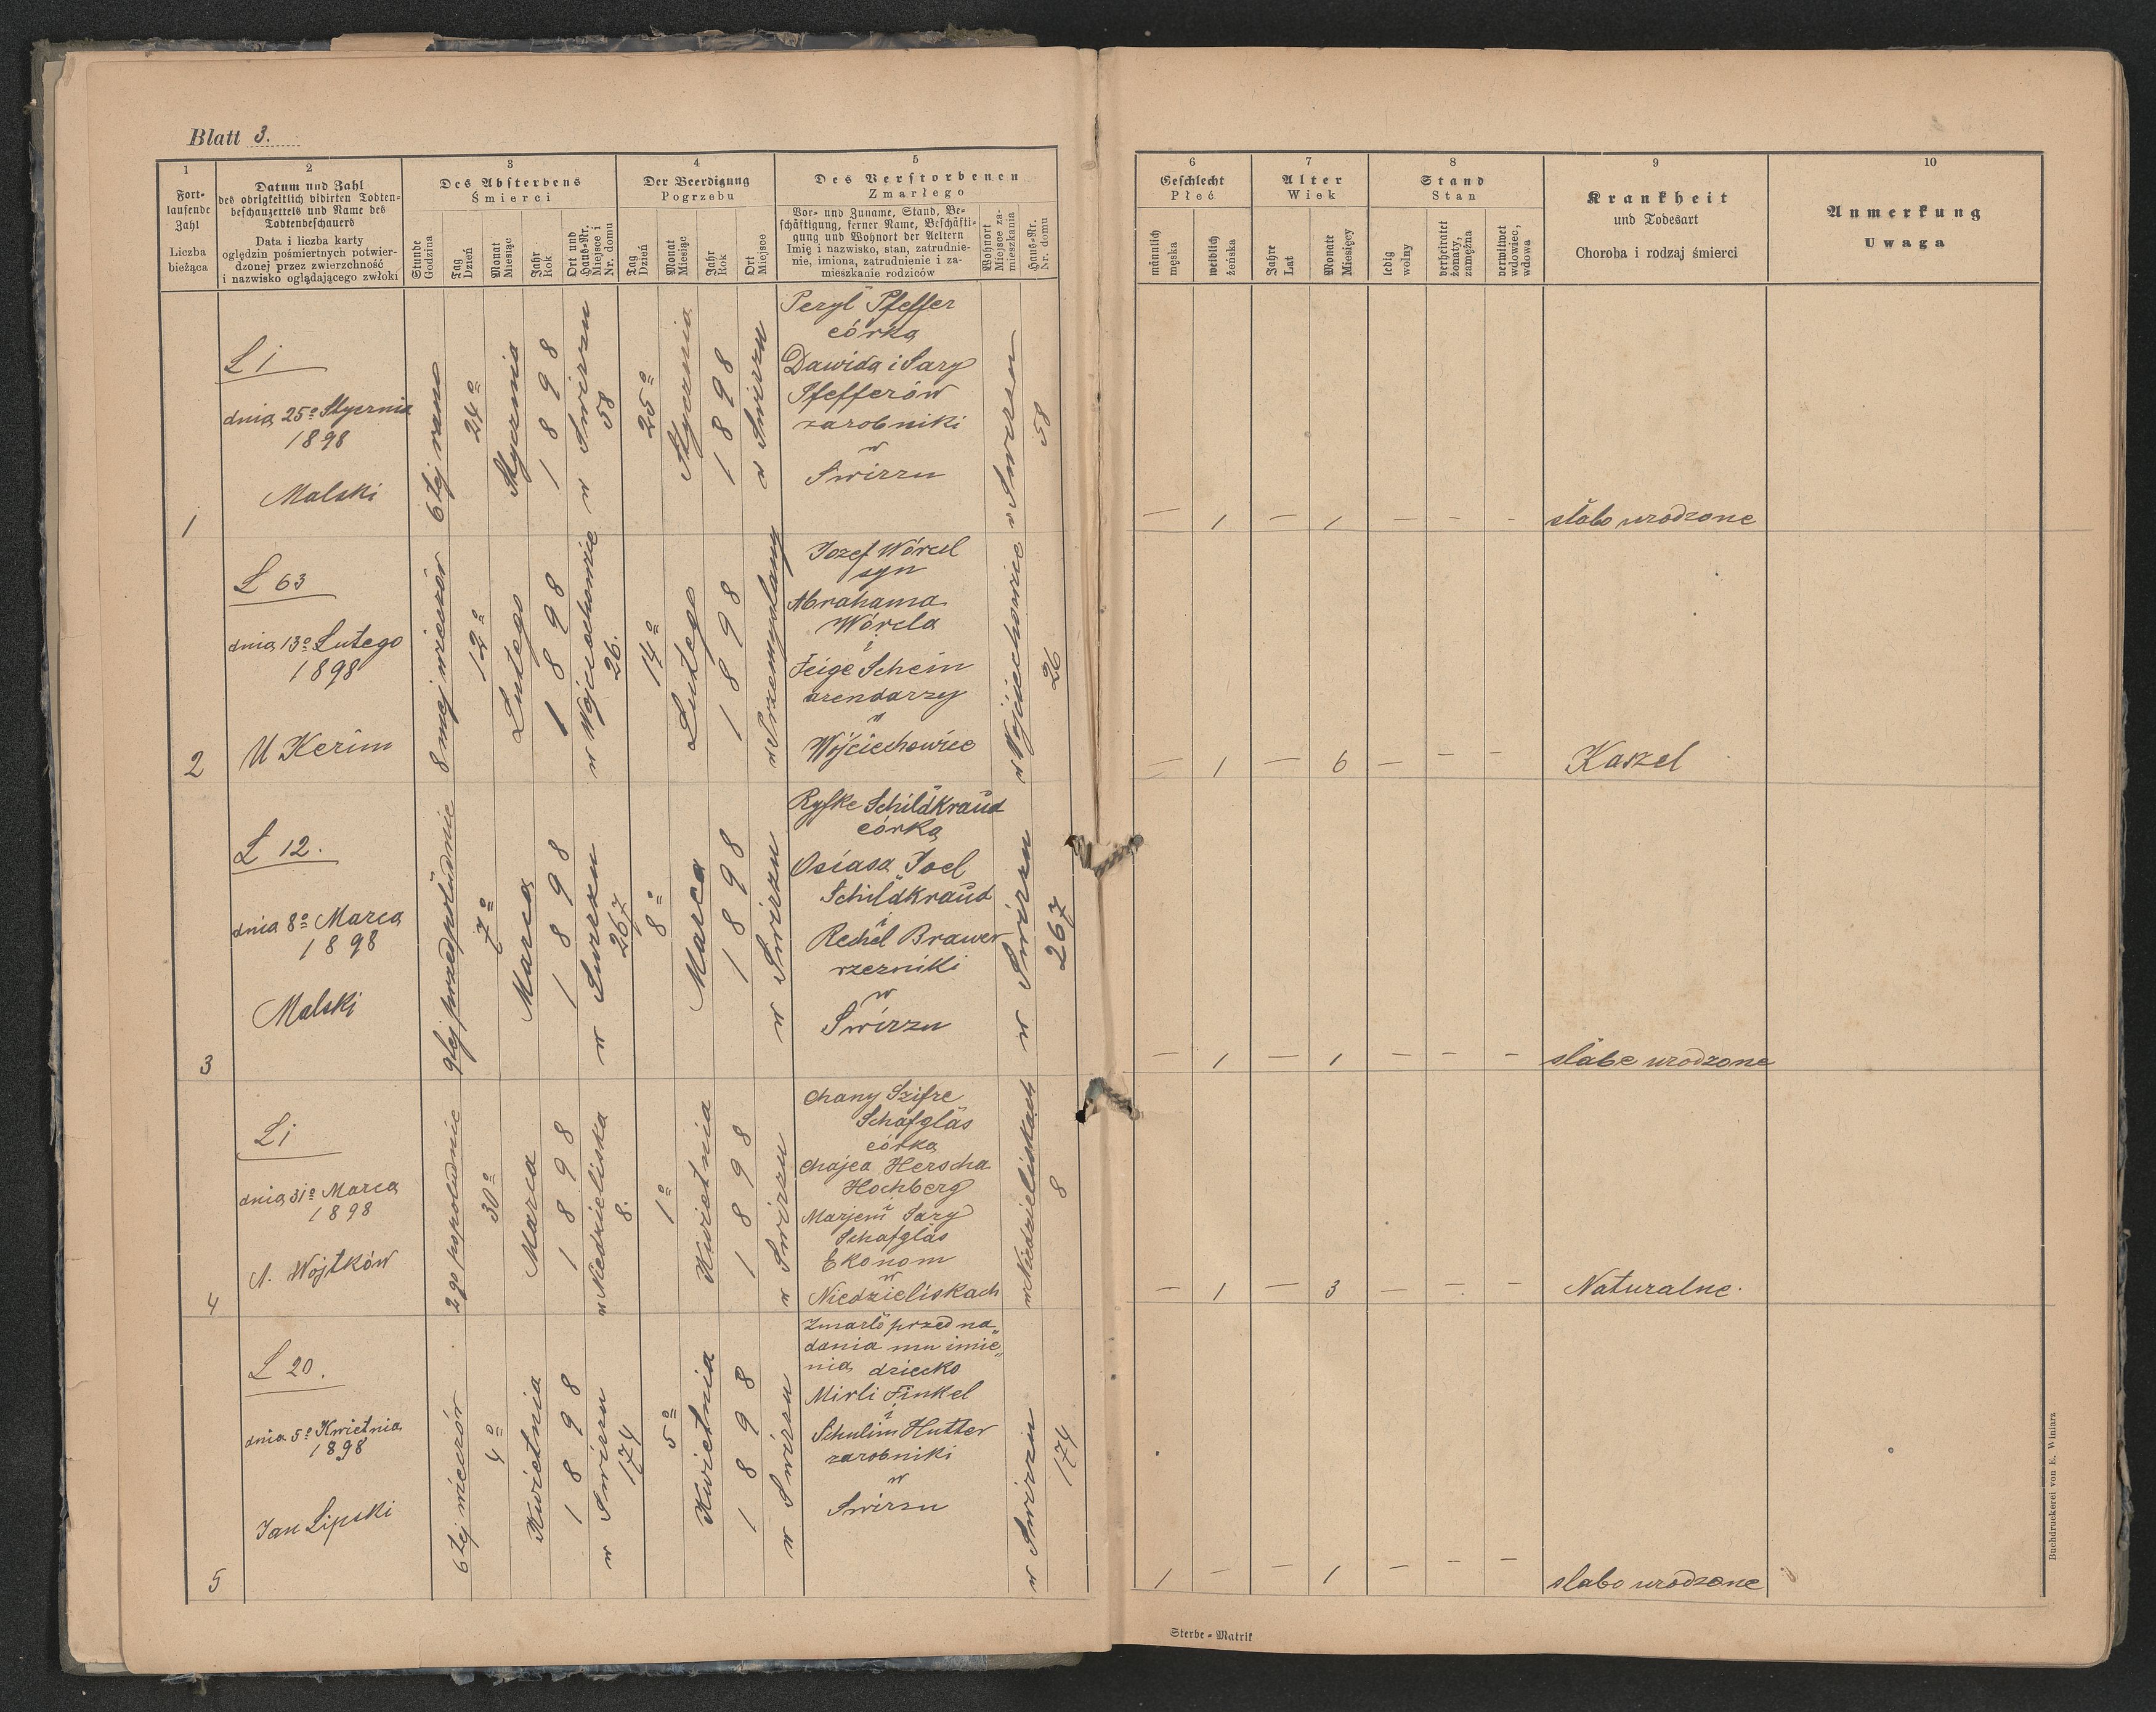 Blatt 3.
1
Fort-
laufende
Zahl
Liczba
bieżąca
2
Datum und Zahl
des obrigkeitlich vidirten Todten-
beschauzettels und Name des
Todtenbeschauers
Data i liczba karty
oględzin pośmiertnych potwier-
dzonej przez zwierzchność
i nazwisko oglądającego zwłoki
3
Des Absterbens
Śmierci
Stunde
Godzina
Tag
Dzień
Monat
Miesiąc
Jahr
Rok
Ort und
Haus-Nr.
Miejsce i
Nr. domu
4
Der Beerdigung
Pogrzebu
Tag
Dzień
Monat
Miesiąc
Jahr
Rok
Ort
Miejsce
5
Des Verstorbenen
Zmarłego
Vor- und Zuname, Stand, Be-
schäftigung, ferner Name, Beschäfti-
gung und Wohnort der Aeltern
Imię i nazwisko, stan, zatrudnie-
nie, imiona, zatrudnienie i za-
mieszkanie rodziców
Wohnort
Miejsce za-
mieszkania
Haus-Nr.
Nr. domu
6
Geschlecht
Płeć
männlich
męska
weiblich
żeńska
7
Alter
Wiek
Jahre
Lat
Monate
Miesięcy
8
Stand
Stan
ledig
wolny
verheiratet
żonaty,
zamężna
verwitwet
wdowiec,
wdowa
9
Krankheit
und Todesart
Choroba i rodzaj śmierci
10
Anmerkung
Uwaga
1
L 1
dnia 25º Stycznia
1898
Malski
6tej rano
24º
Stycznia
1898
w Swirzu
58
25º
Stycznia
1898
w Swirzu
Peryl Pfeffer
córka
Dawida i Sary
Pfefferów
zarobniki
w
Swirzu
w Swirzu
58
— 1 — 1 — — -
słabo urodzone
2
L 63
dnia 13º Lutego
1898
U Kerim
8mej wieczór
12º
Lutego
1898
w Wójciechowie
26.
14º
Lutego
1898
w Przemyslany
Jozef Wórcel
syn
Abrahama
Wórcla
i
Feige Schein
arendarzy
w
Wójciechowiec
w Wójciechowice
26
— 1 — 6 — — —
Kaszel
3
L 12.
dnia 8º Marca
1898
Malski
9tej przedpołudnie
7º
Marca
1898
w Swirzu
267
8º
Marca
1898
w Swirzu
Ryfke Schildkraud
córka
Osiasa Joel
Schildkraud
i
Rechel Brawer
rzezniki
w
Swirzu
w Swirzu
267
— 1 — 1 — — —
słabe urodzone
4
L 1
dnia 31º Marca
1898
A. Wojtków
2go popołudnie
30º
Marca
1898
w Niedzieliska
8.
1º
Kwietnia
1898
w Swirzu
Chany Szifre
Schafglas
córka
Chajea Herscha
Hochberg
i
Marjem Sary
Schafglas
Ekonom
w
Niedzieliskach
w Niedzieliskach
8
— 1 — 3 — — —
Naturalne.
5
L 20.
dnia 5º Kwietnia
1898
Jan Lipski
6tej wieczór
4º
Kwietnia
1898
w Swirzu
174
5º
Kwietnia
1898
w Swirzu
Zmarło przed na„
dania mu imie„
nia dziecko
Mirli Finkel
i
Schulim Hutter
zarobniki
w
Swirzu
w Swirzu
174
1 — — 1 — — —
słabo urodzone
Sterbe-Matrik
Buchdruckerei von E. Winiarz